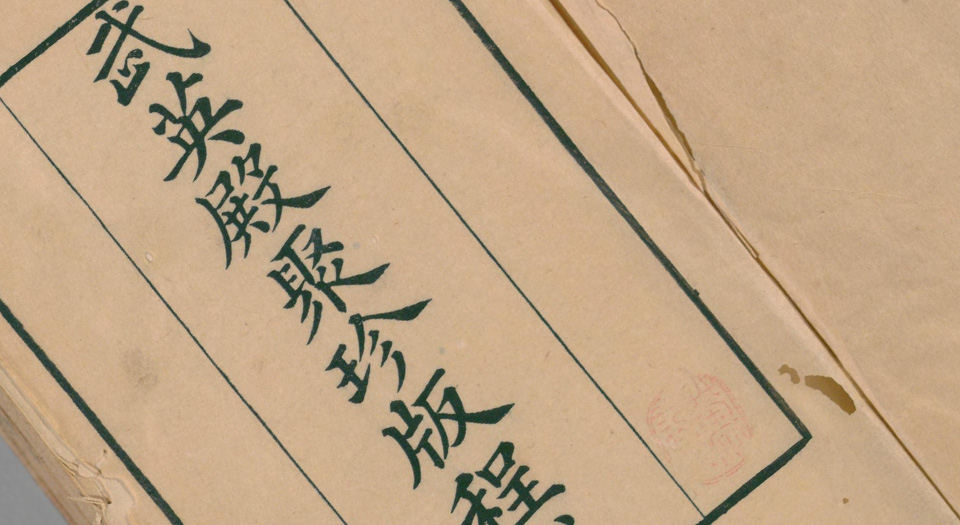 武英殿聚珍版程